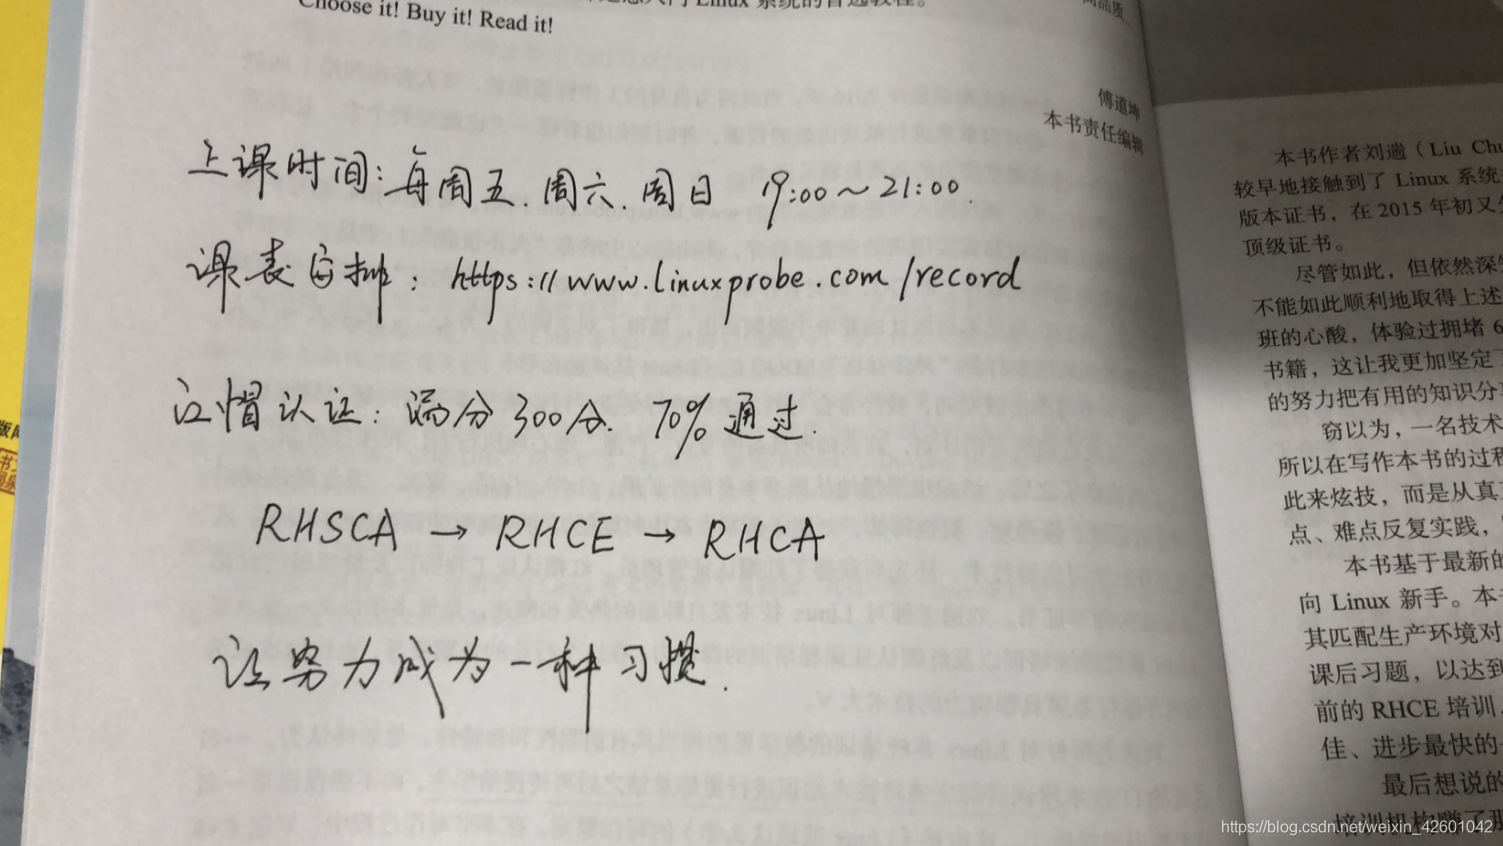 Choose it! Buy it! Read it!
傅道坤
本书责任编辑
上课时间:每周五.周六.周日 19:00~21:00.
课表安排: https://www.linuxprobe.com/record
红帽认证: 满分300分. 70%通过.
RHSCA → RHCE → RHCA
让努力成为一种习惯.
本书作者刘遄（Liu Chu
较早地接触到了 Linux 系统
版本证书，在 2015 年初又
顶级证书。
尽管如此，但依然深
不能如此顺利地取得上述
班的心酸，体验过拥堵 6
书籍，这让我更加坚定了
的努力把有用的知识分
窃以为，一名技术
所以在写作本书的过程
此来炫技，而是从真
点、难点反复实践，
本书基于最新的
向 Linux 新手。本书
其匹配生产环境对
课后习题，以达到
前的 RHCE 培训
佳、进步最快的
最后想说的
培训机构赚了那
https://blog.csdn.net/weixin_42601042